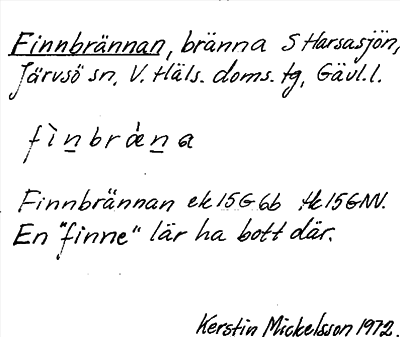 Finnbrännan, bränna S Harsasjön,
Järvsö sn, V. Häls. doms. tg, Gävl. l.
fìn̲bræ̀n̲a
Finnbrännan ek 15G6b tk 15GNV.
En "finne" lär ha bott där.
Kerstin Mickelsson 1972.